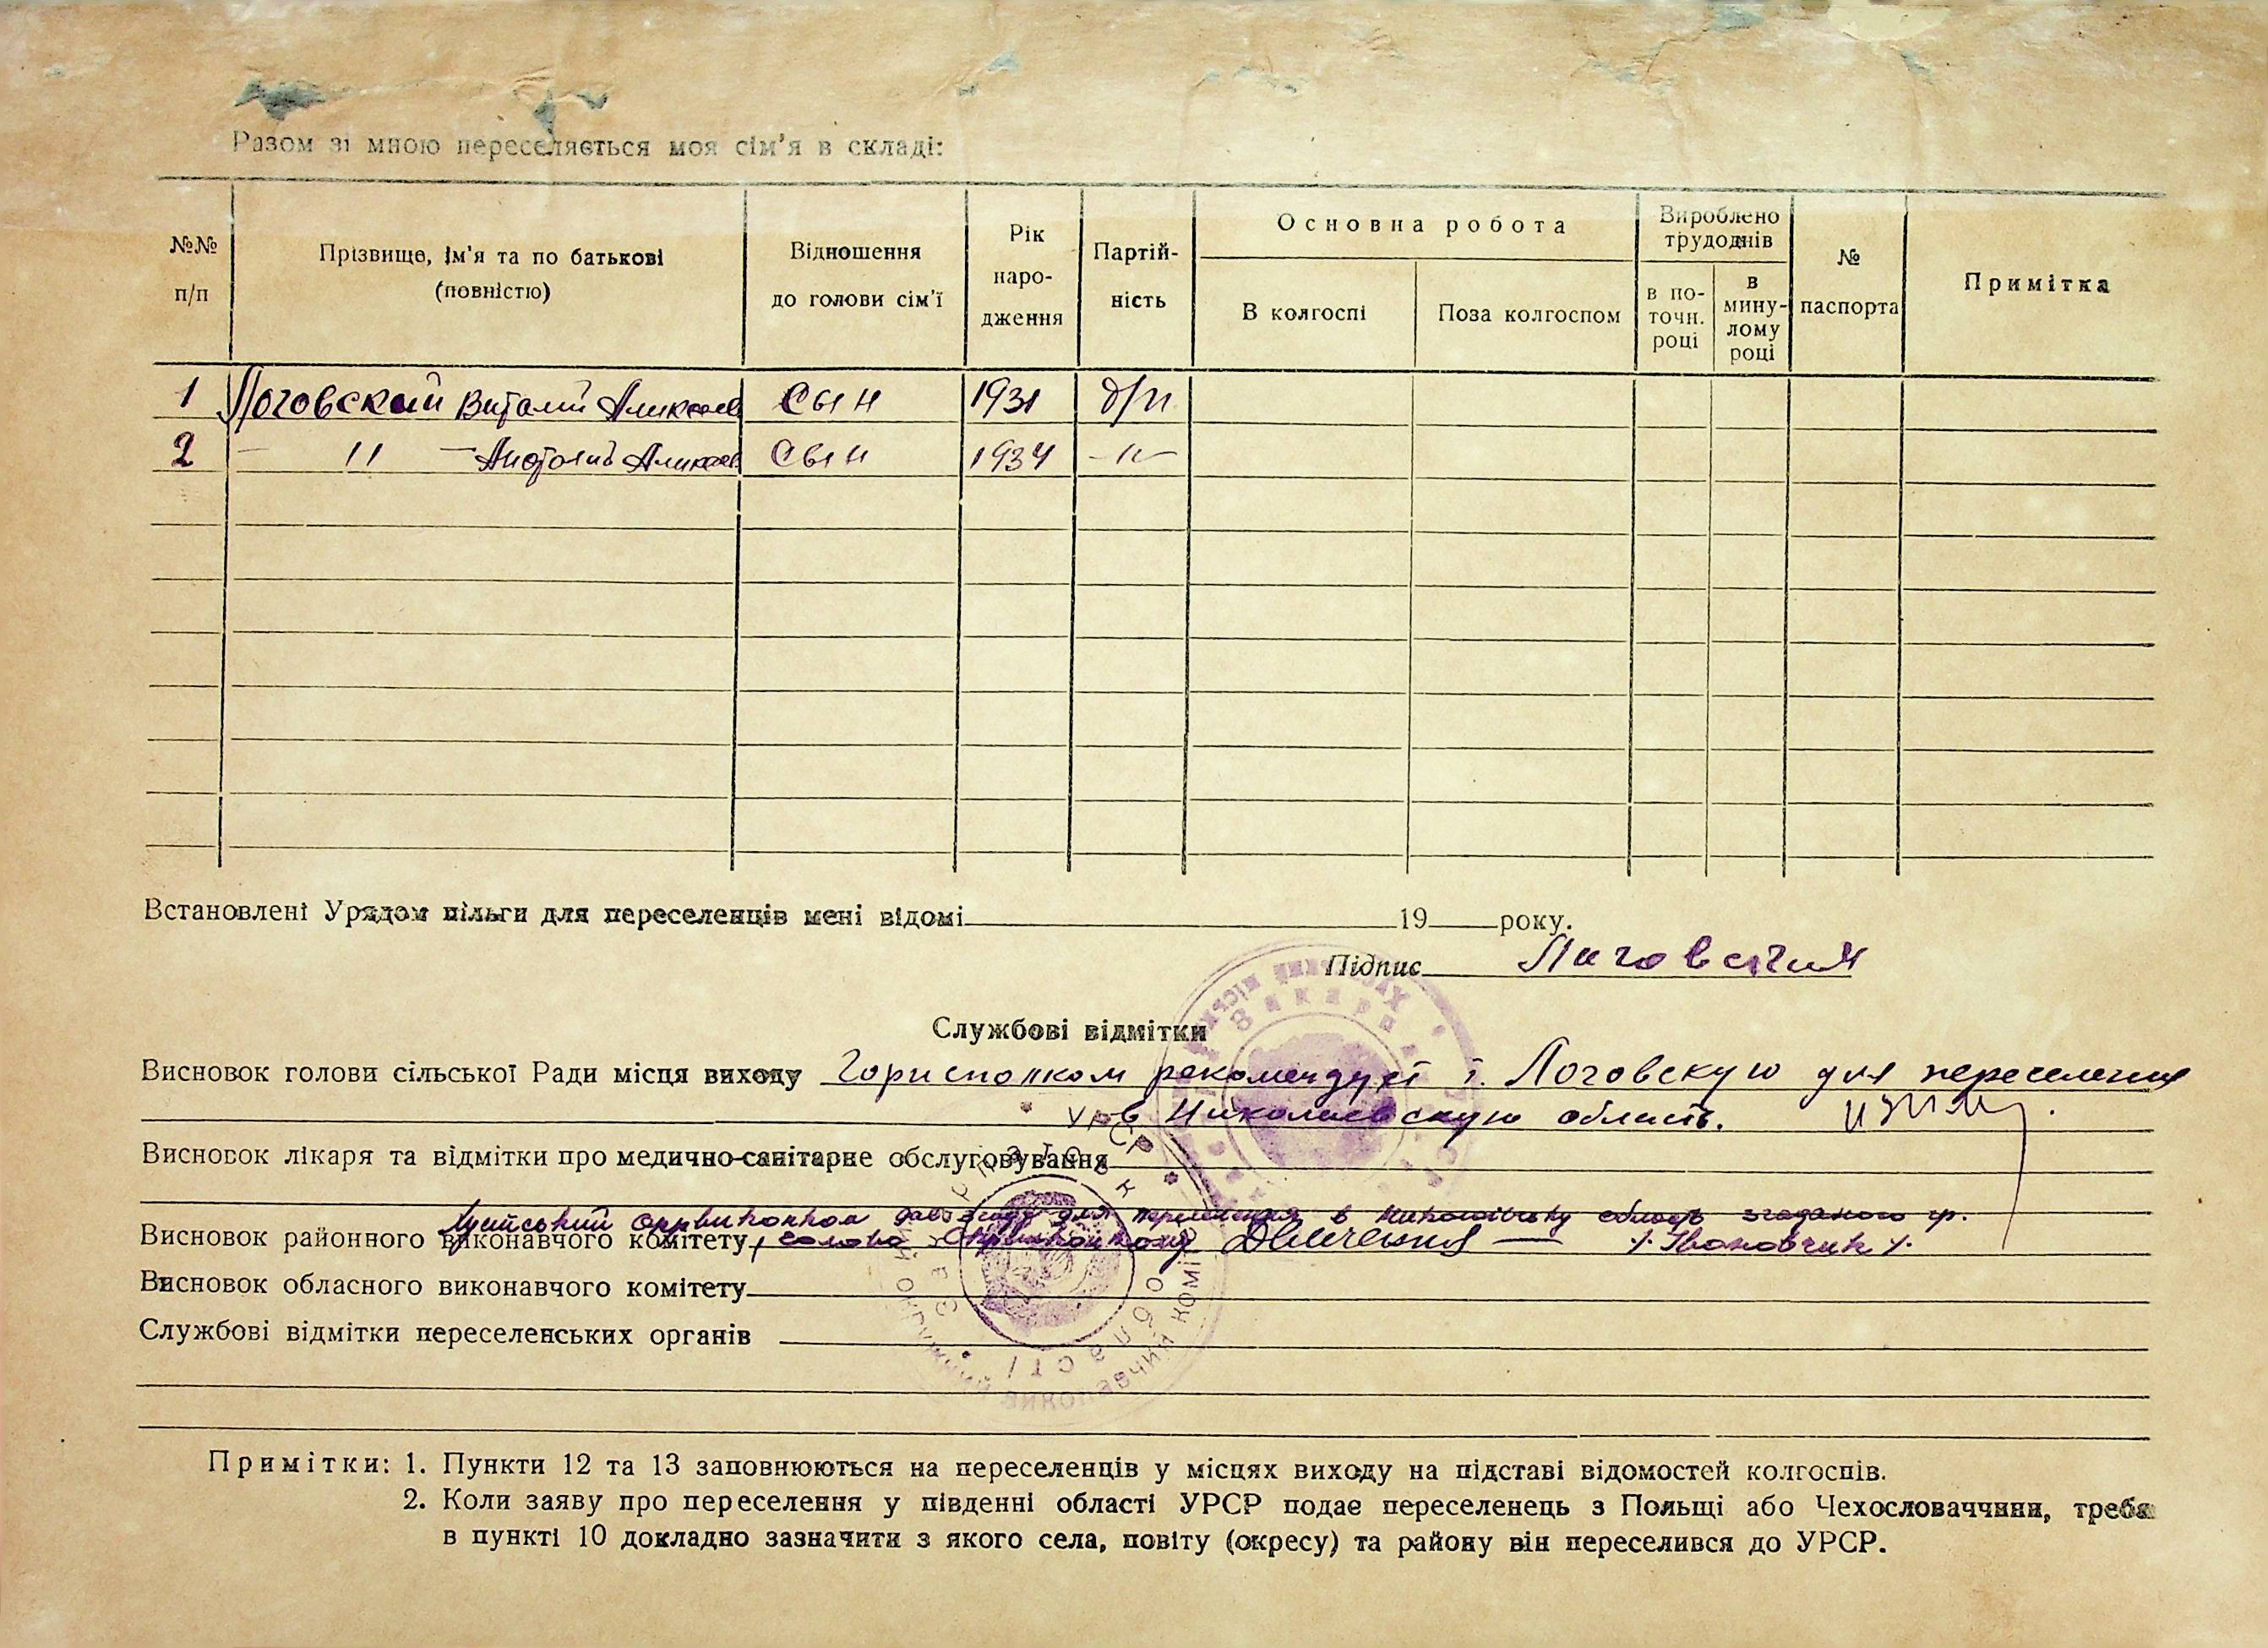 Разом зі мною переселяється моя сім'я в складі:
№№ п/п
Прізвище, ім'я та по батькові (повністю)
Відношення до голови сім'ї
Рік народження
Партій-ність
Основна робота
В колгоспі
Поза колгоспом
Вироблено трудоднів
в по-точн. році
в мину-лому році
№ паспорта
Примітка
1 Логовский Виталий Алексеев сын 1931 б/п
2 — 11 — Анатолий Алексеев сын 1934 —11—
Встановлені Урядом пільги для переселенців мені відомі 19 року.
Підпис
Службові відмітки
Висновок голови сільської Ради місця виходу Горисполком рекомендует т. Логовскую для переселения
в Николаевскую область.
Висновок лікаря та відмітки про медично-санітарне обслуговування
Висновок районного виконавчого комітету
Висновок обласного виконавчого комітету
Службові відмітки переселенських органів
Примітки: 1. Пункти 12 та 13 заповнюються на переселенців у місцях виходу на підставі відомостей колгоспів.
2. Коли заяву про переселення у південні області УРСР подає переселенець з Польщі або Чехословаччини, треба
в пункті 10 докладно зазначити з якого села, повіту (окресу) та району він переселився до УРСР.